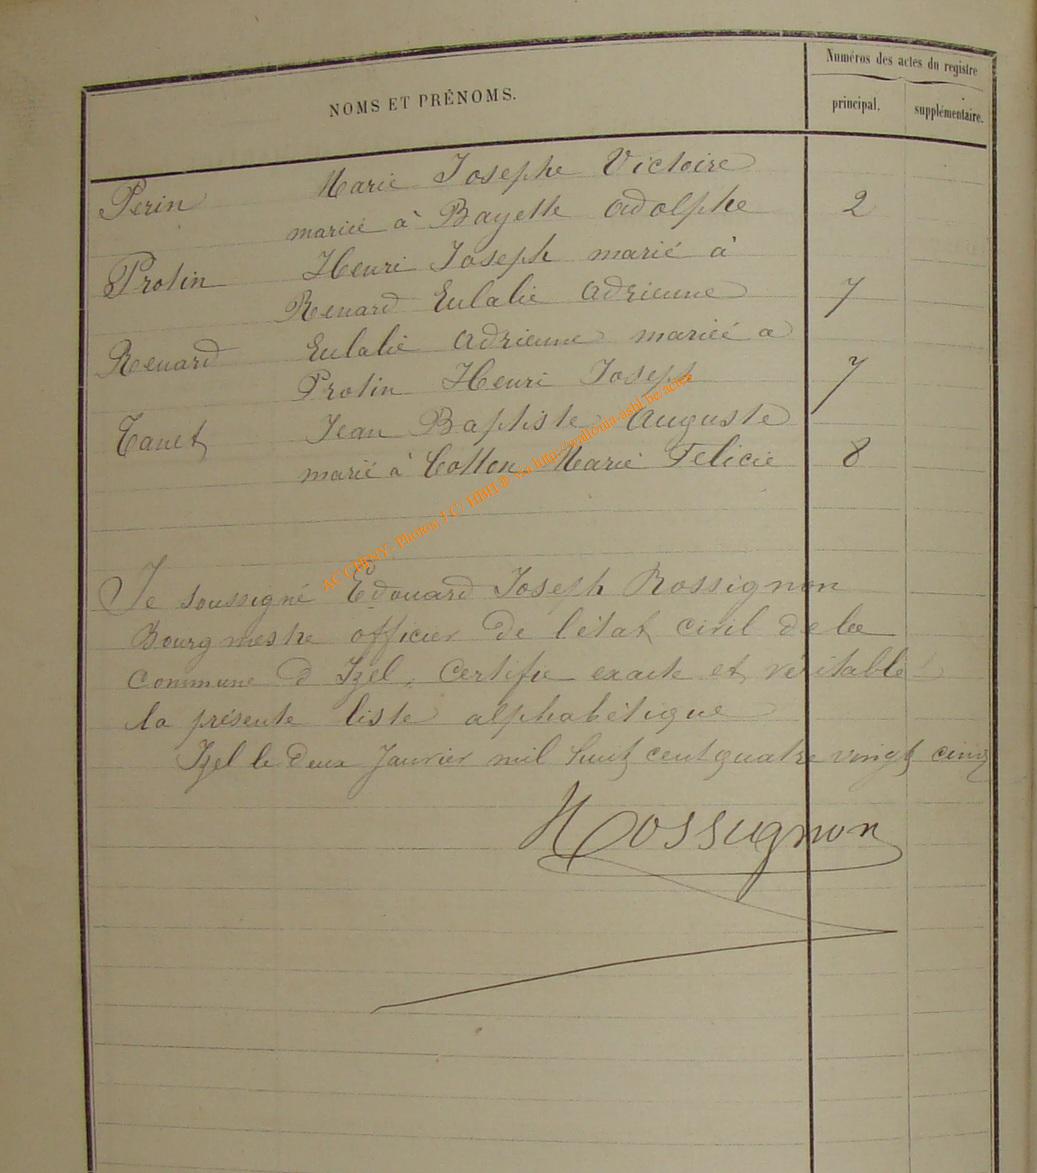 Numéros des actes du registre
NOMS ET PRÉNOMS.
principal. supplémentaire.
Perin Marie Josephe Victoire
mariée à Bayette Adolphe 2
Protin Henri Joseph marié à
Renard Eulalie Adrienne 7
Renard Eulalie Adrienne mariée a
Protin Henri Joseph 7
Tanet Jean Baptiste Auguste
marié à Cotton Marie Felicie 8
AC CHINY - Photos J.C. HBH © via http://wallonia-asbl.be.actes
Je soussigné Edouard Joseph Rossignon
Bourgmestre officier de l'état civil de la
commune d Izel, certifie exacte et véritable
la présente liste alphabétique
Izel le deux Janvier mil huit cent quatre vingt cinq
Rossignon